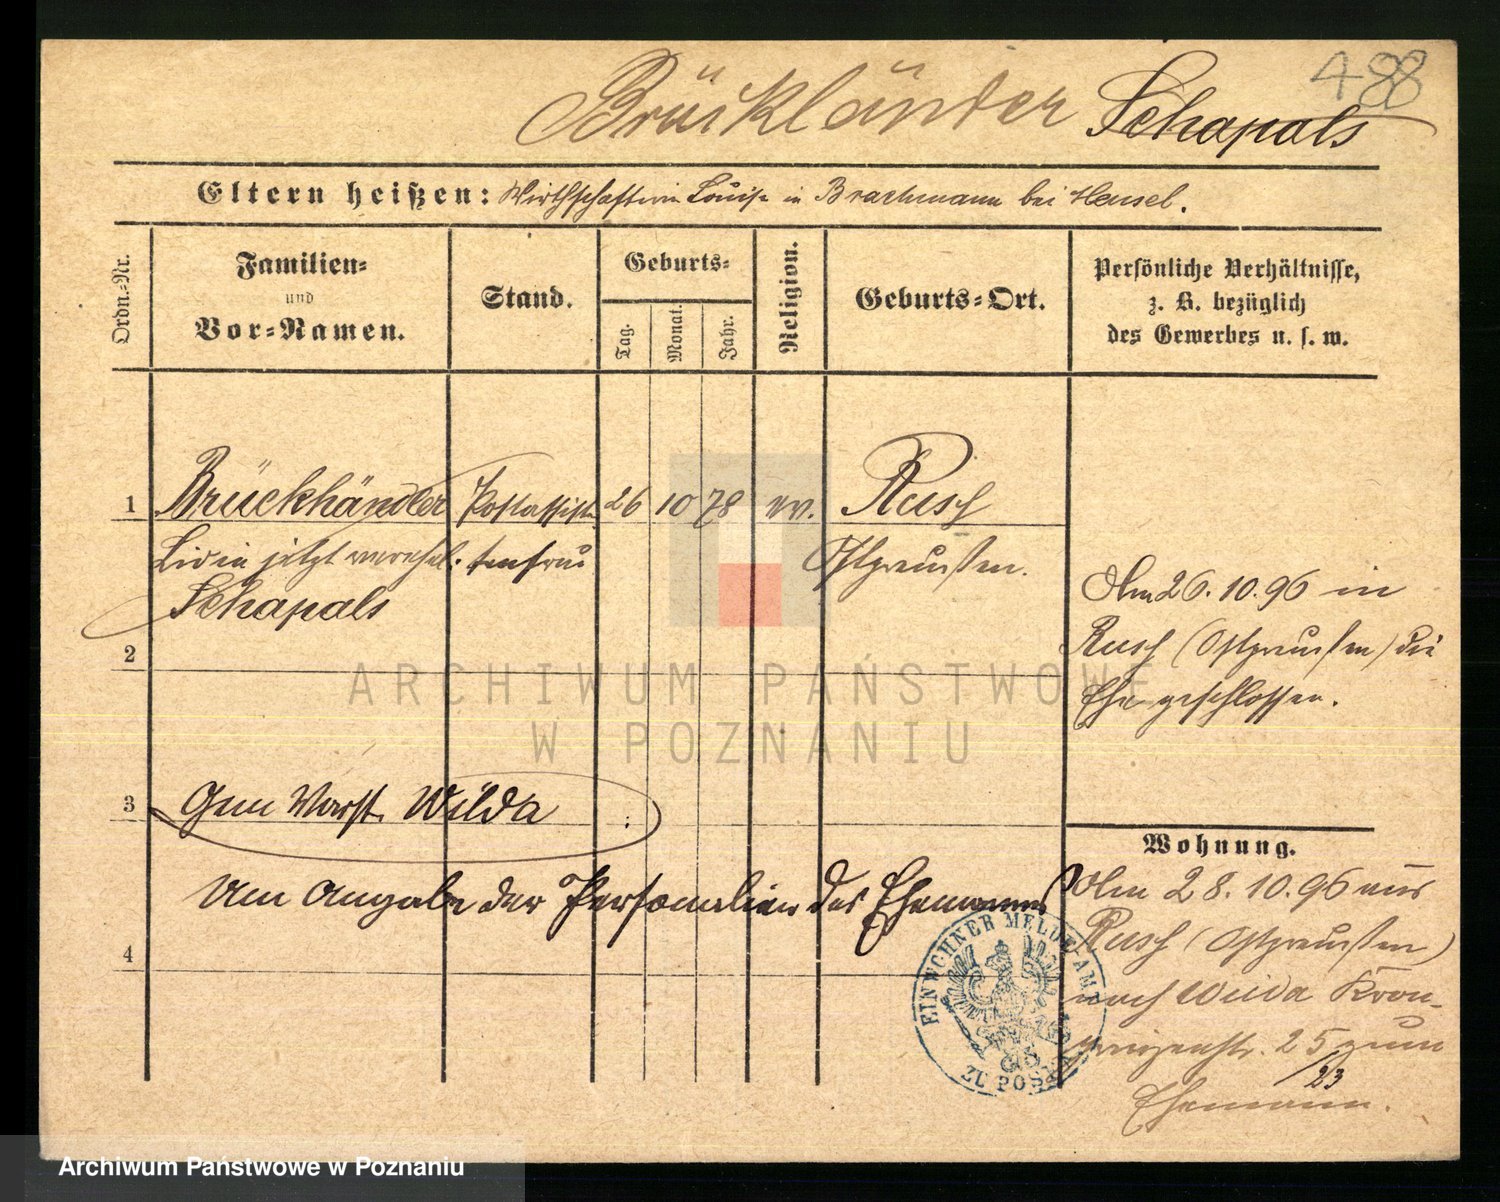 488
Brückländer Schapals
Eltern heißen: Wirthschafterin Louise in Brachmann bei Hensel.
Ordn.-Nr.
Familien-
und
Vor-Namen.
Stand.
Geburts-
Tag.
Monat.
Jahr.
Religion.
Geburts-Ort.
Persönliche Verhältnisse,
z. B. bezüglich
des Gewerbes u. s. w.
1 Brückhändler Postassisten 26 10 78 ev. Rusch
Lidia jetzt verehel. tenfrau Ostpreussen.
Schapals
2
Am 26.10.96 in
Rusch (Ostpreussen) die
Ehe geschlossen.
3 Gem Vorst. Wilda
Um Angabe der Personalien des Ehemannes
4
Wohnung.
Am 28.10.96 aus
Rusch (Ostpreussen)
nach Wilda Kron-
prinzenstr. 25 zum
/23
Ehemann.
EINWOHNER MELDE-AMT
ZU POSEN
ARCHIWUM PAŃSTWOWE
W POZNANIU
Archiwum Państwowe w Poznaniu